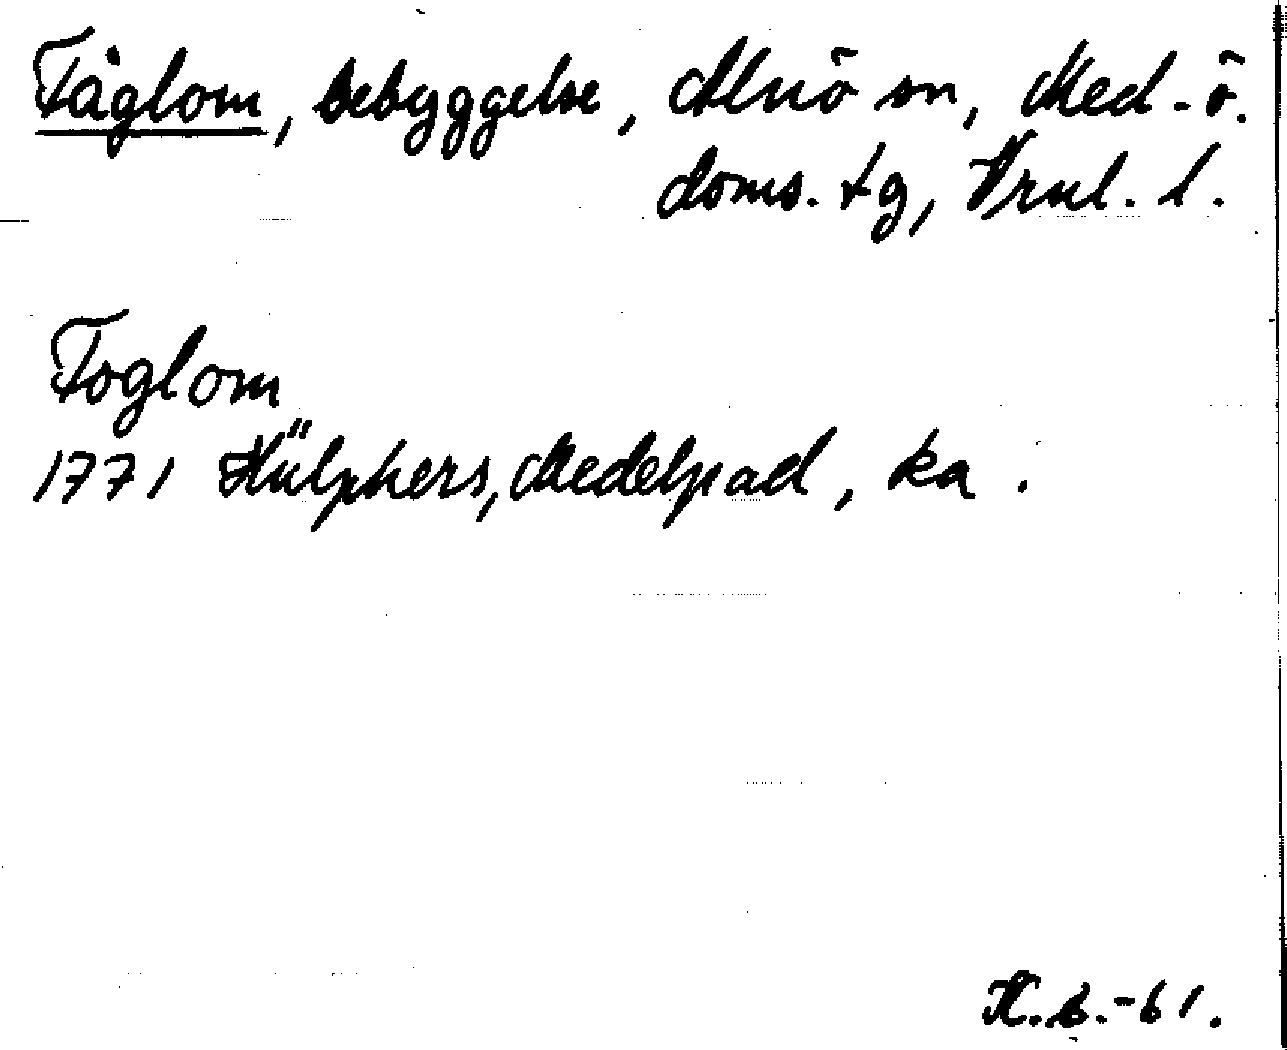 Tåglom, bebyggelse, Alnö sn, Med.-ö.
doms. tg, Vrnl. l.
Toglom
1771 Hülphers, Medelpad, ka.
K.B.-61.